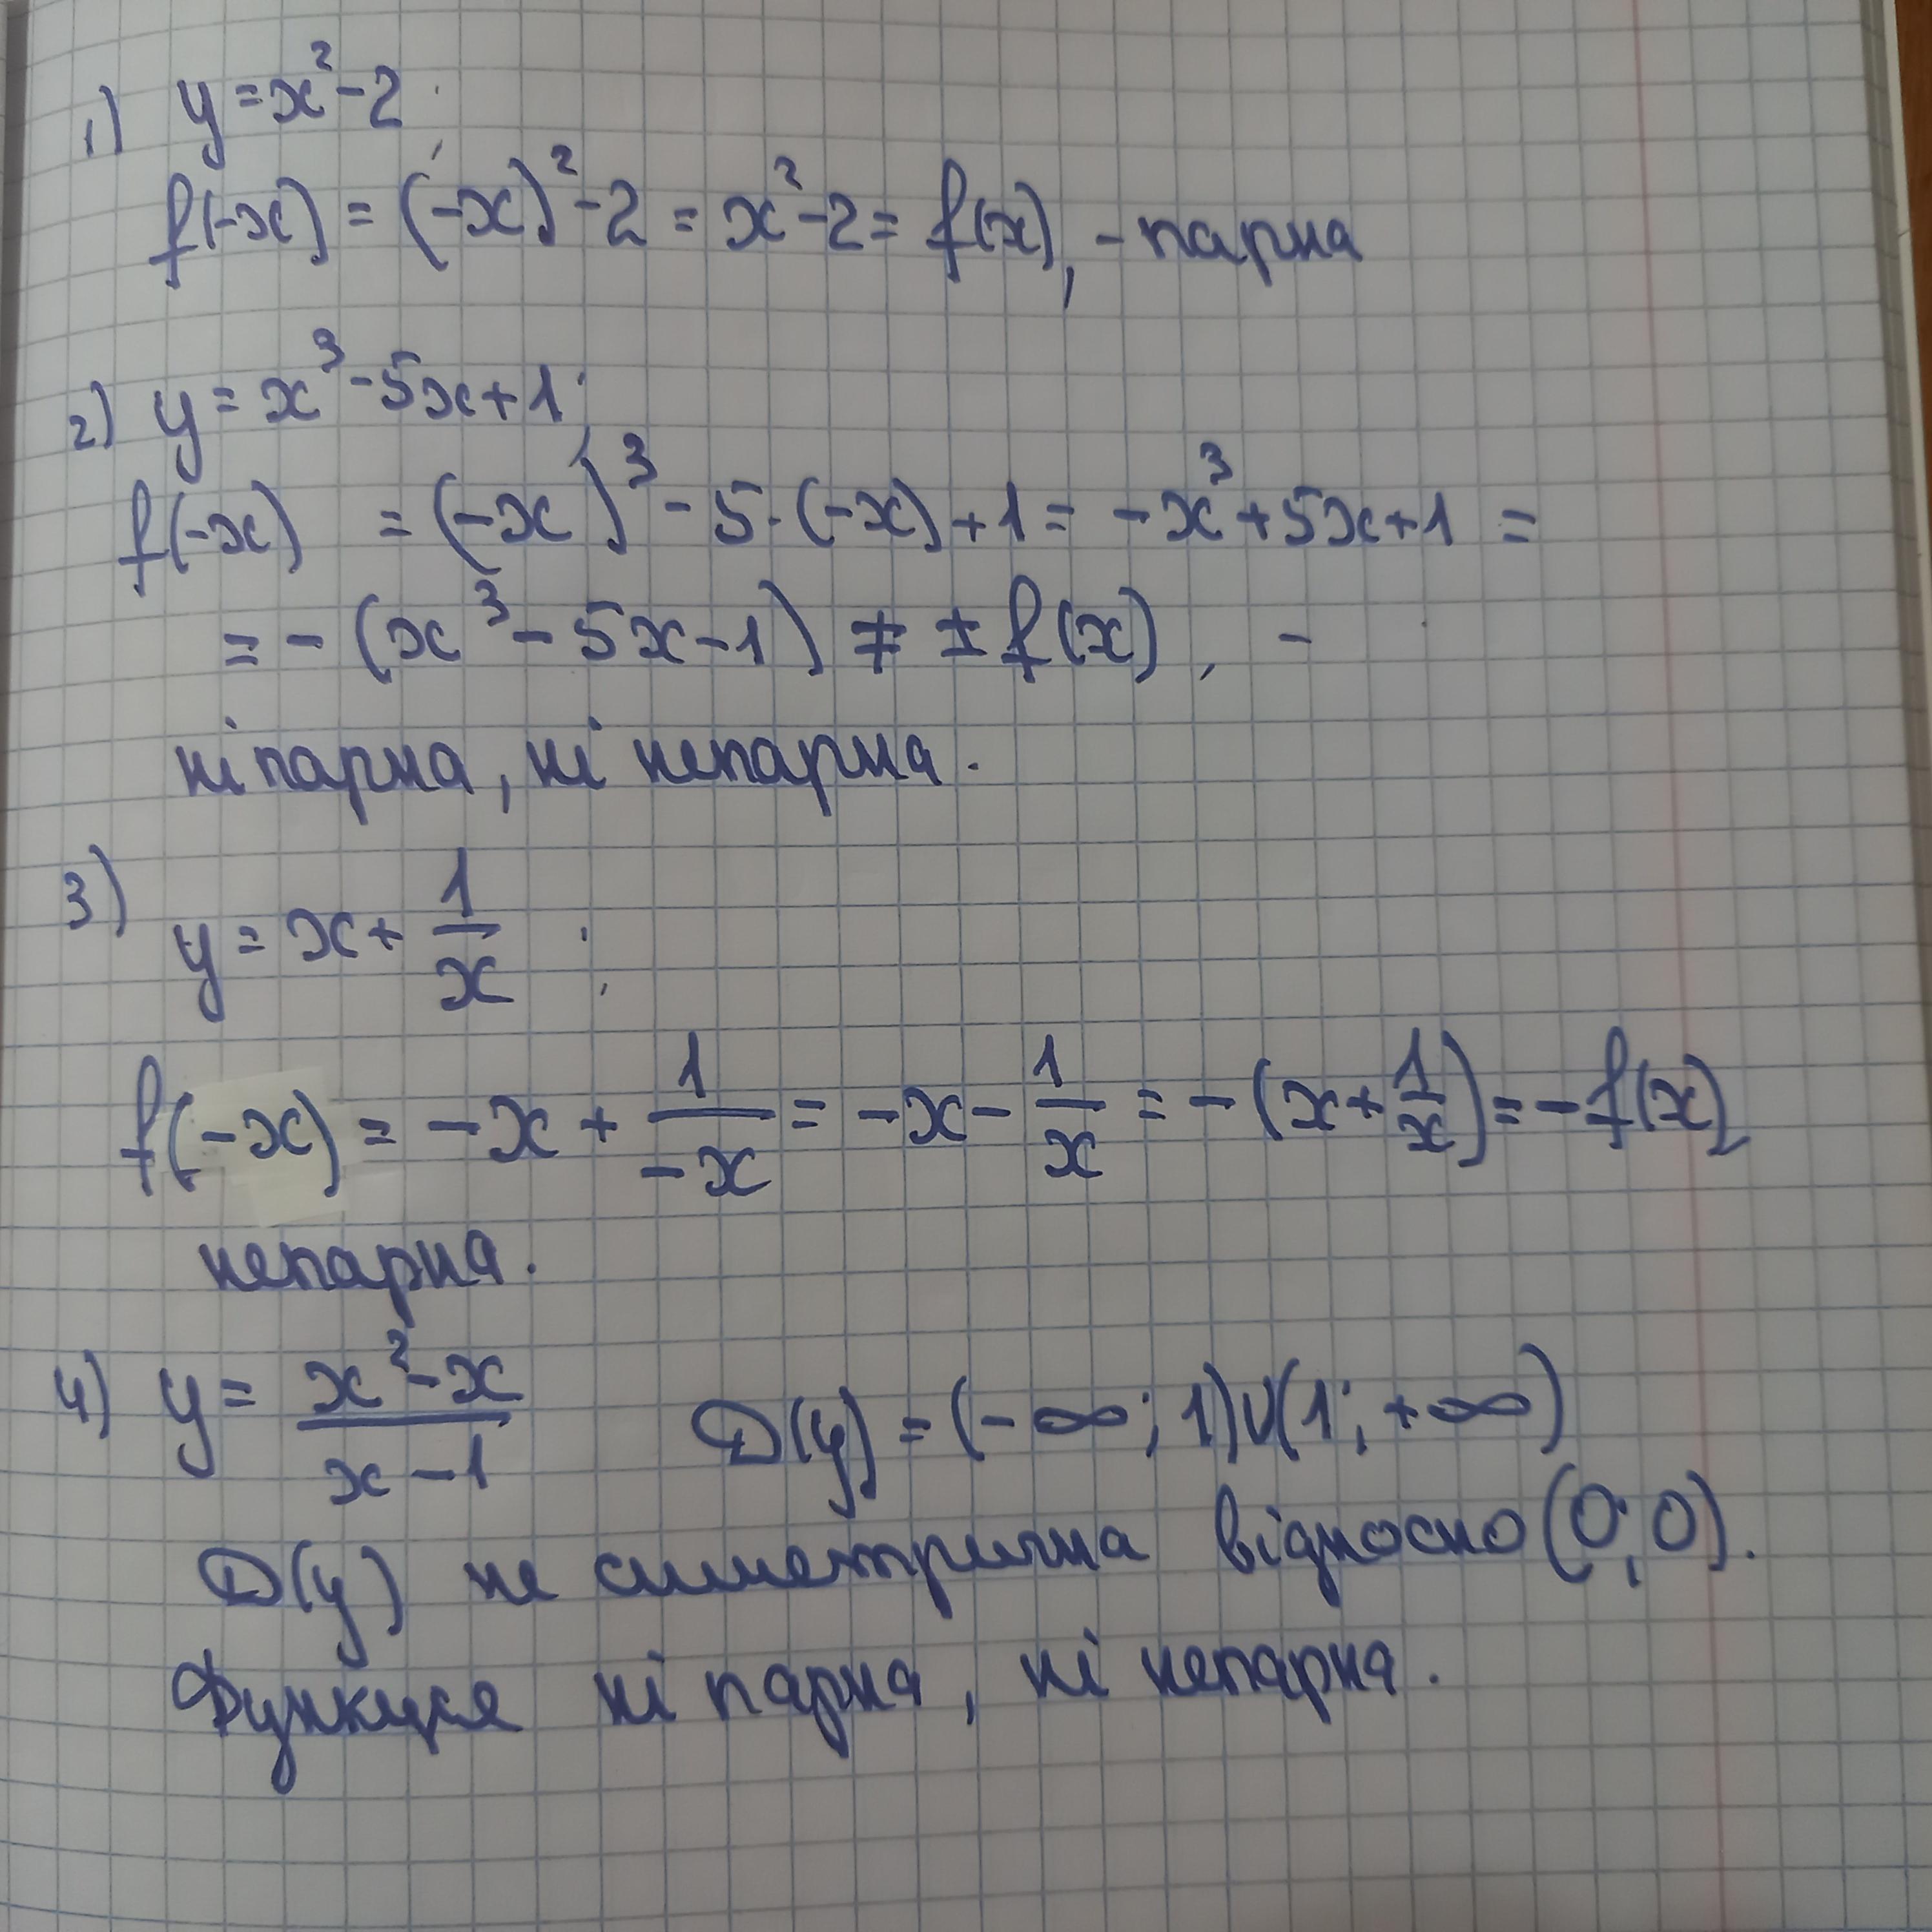 1) y = x² - 2;
f(-x) = (-x)² - 2 = x² - 2 = f(x), - парна
2) y = x³ - 5x + 1;
f(-x) = (-x)³ - 5·(-x) + 1 = -x³ + 5x + 1 =
= -(x³ - 5x - 1) ≠ ± f(x), -
ні парна, ні непарна.
3) y = x + 1/x ;
f(-x) = -x + 1/-x = -x - 1/x = -(x + 1/x) = -f(x),
непарна.
4) y = x² - x / x - 1 D(y) = (-∞; 1)∪(1; +∞)
D(y) не симетрична відносно (0; 0).
Функція ні парна, ні непарна.